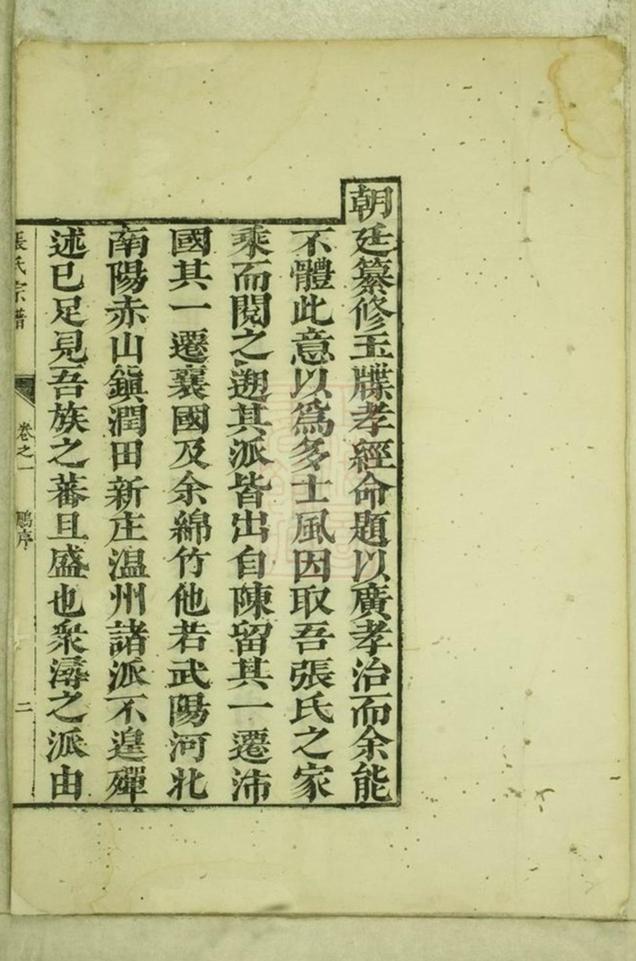 朝廷纂修玉牒孝經命題以廣孝治而余能
不體此意以爲多士風因取吾張氏之家
乘而閱之遡其派皆出自陳留其一遷沛
國其一遷襄國及余綿竹他若武陽河北
南陽赤山鎮潤田新庄温州諸派不遑殫
述已足見吾族之蕃且盛也衆潯之派由
張氏宗譜 卷之一 鵬序 二